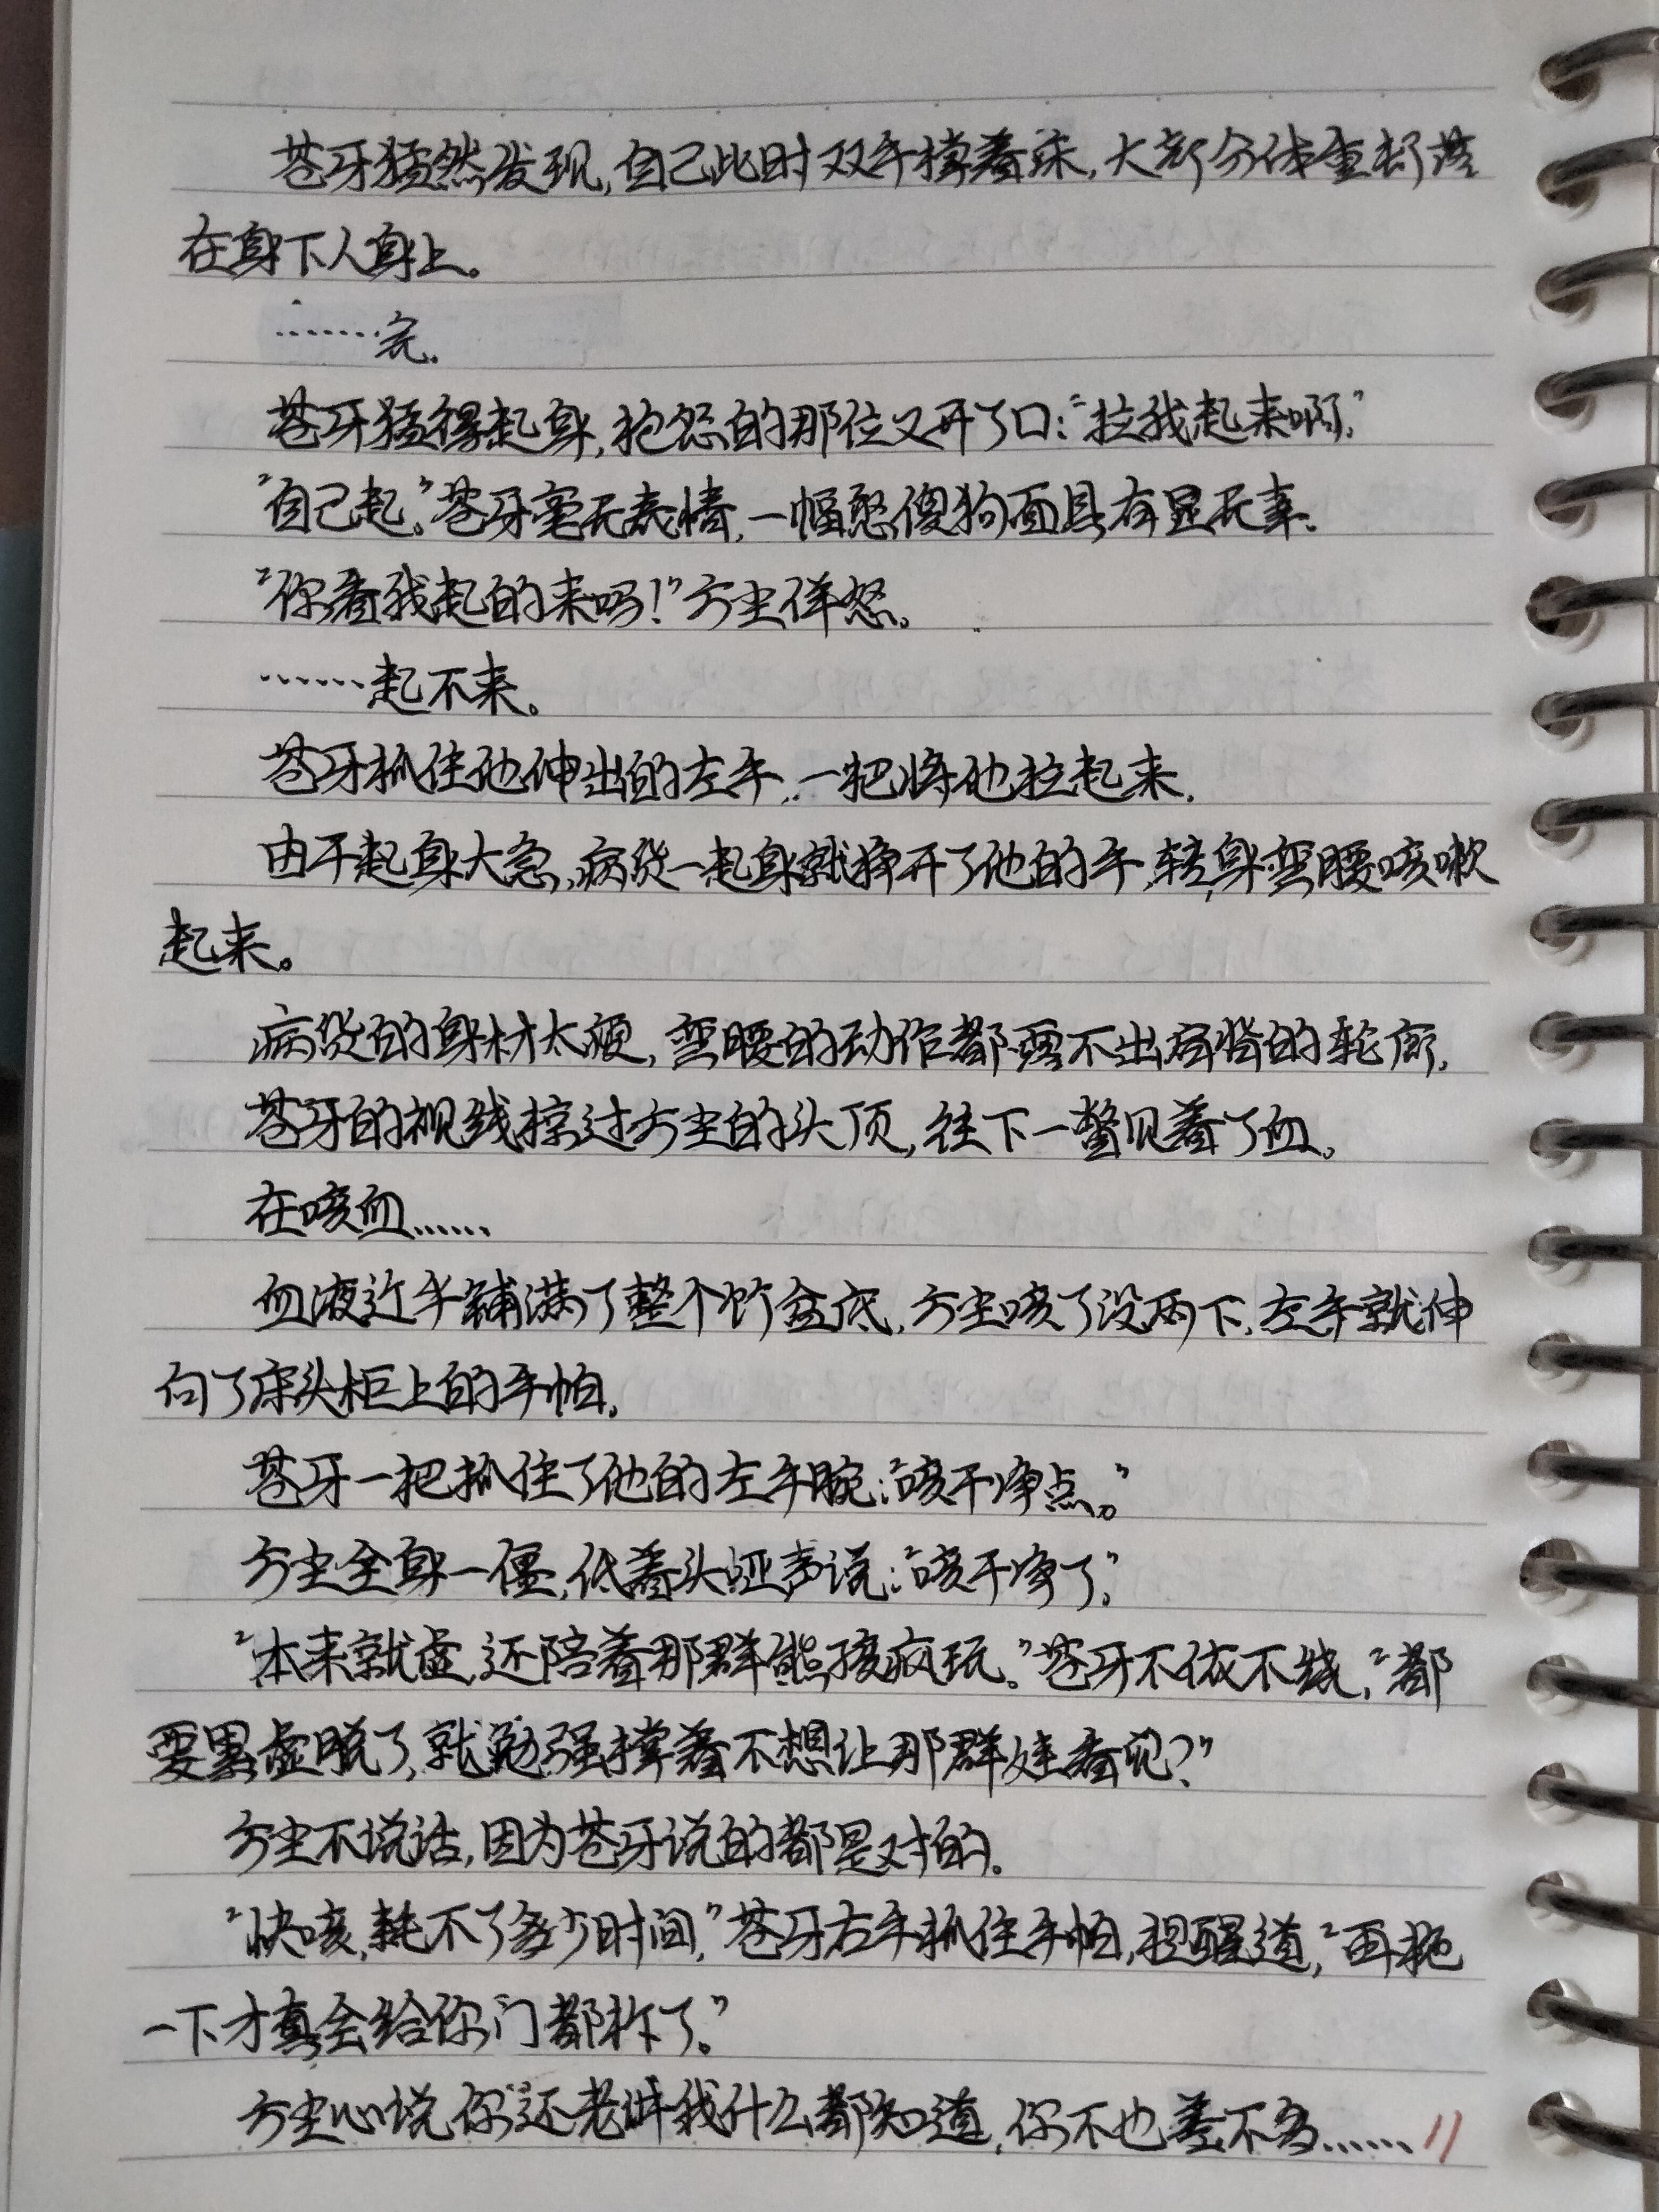 苍牙猛然发现，自己此时双手撑着床，大部分体重都落
在身下人身上。
……完。
苍牙猛得起身，抱怨的那位又开了口：“拉我起来啊，”
“自己起。”苍牙毫无表情，一幅憨傻狗面具有显无辜。
“你看我起的来吗！”方尘佯怒。
……起不来。
苍牙抓住他伸出的左手，一把将他拉起来。
由于起身太急，病货一起身就挣开了他的手，转身弯腰咳嗽
起来。
病货的身材太瘦，弯腰的动作都露不出脊背的轮廓。
苍牙的视线掠过方尘的头顶，往下一瞥见着了血。
在咳血……
血液近乎铺满了整个竹盆底，方尘咳了没两下，左手就伸
向了床头柜上的手帕。
苍牙一把抓住了他的左手腕：“咳干净点。”
方尘全身一僵，低着头哑声说：“咳干净了，”
“本来就虚，还陪着那群熊孩疯玩。”苍牙不依不饶，“都
要累虚脱了，就勉强撑着不想让那群娃看见？”
方尘不说话，因为苍牙说的都是对的。
“快咳，耗不了多少时间，”苍牙右手抓住手帕，提醒道，“再拖
一下才真会给你门都拆了。”
方尘心说你还老讲我什么都知道，你不也差不多……11